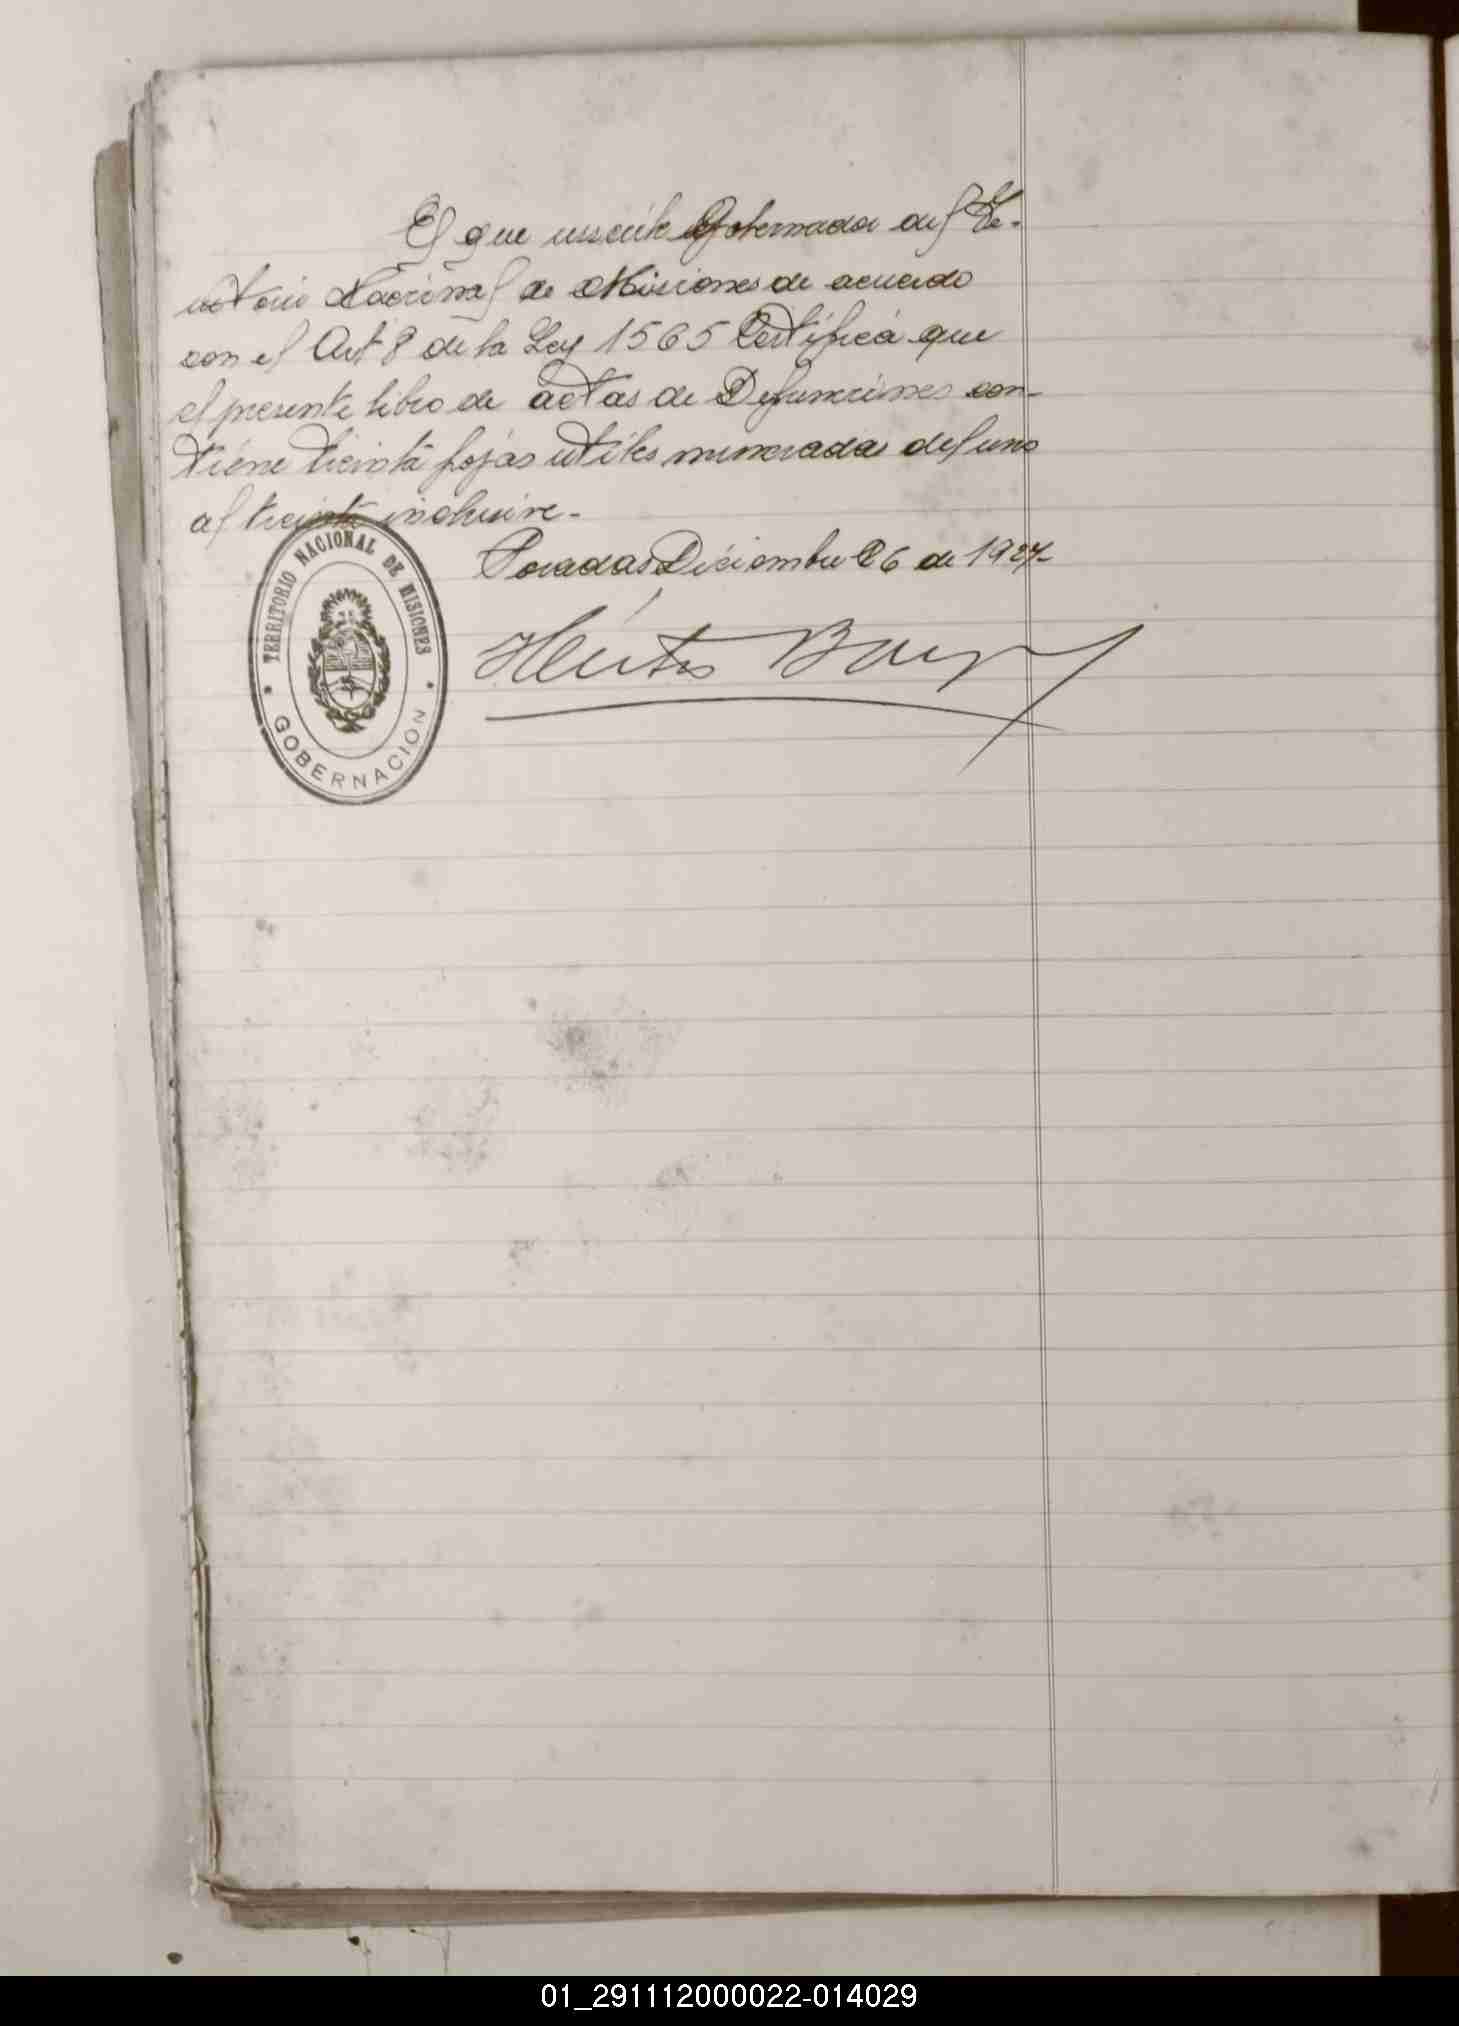 El que suscribe Gobernador del Te-
rritorio Nacional de Misiones de acuerdo
con el Art 8 de la Ley 1565 Certifica que
el presente libro de actas de Defunciones con-
tiene treinta fojas utiles numeradas del uno
al treinta inclusive.-
Posadas Diciembre 26 de 1927-
Héctor Bar
TERRITORIO NACIONAL DE MISIONES
GOBERNACION
01_291112000022-014029